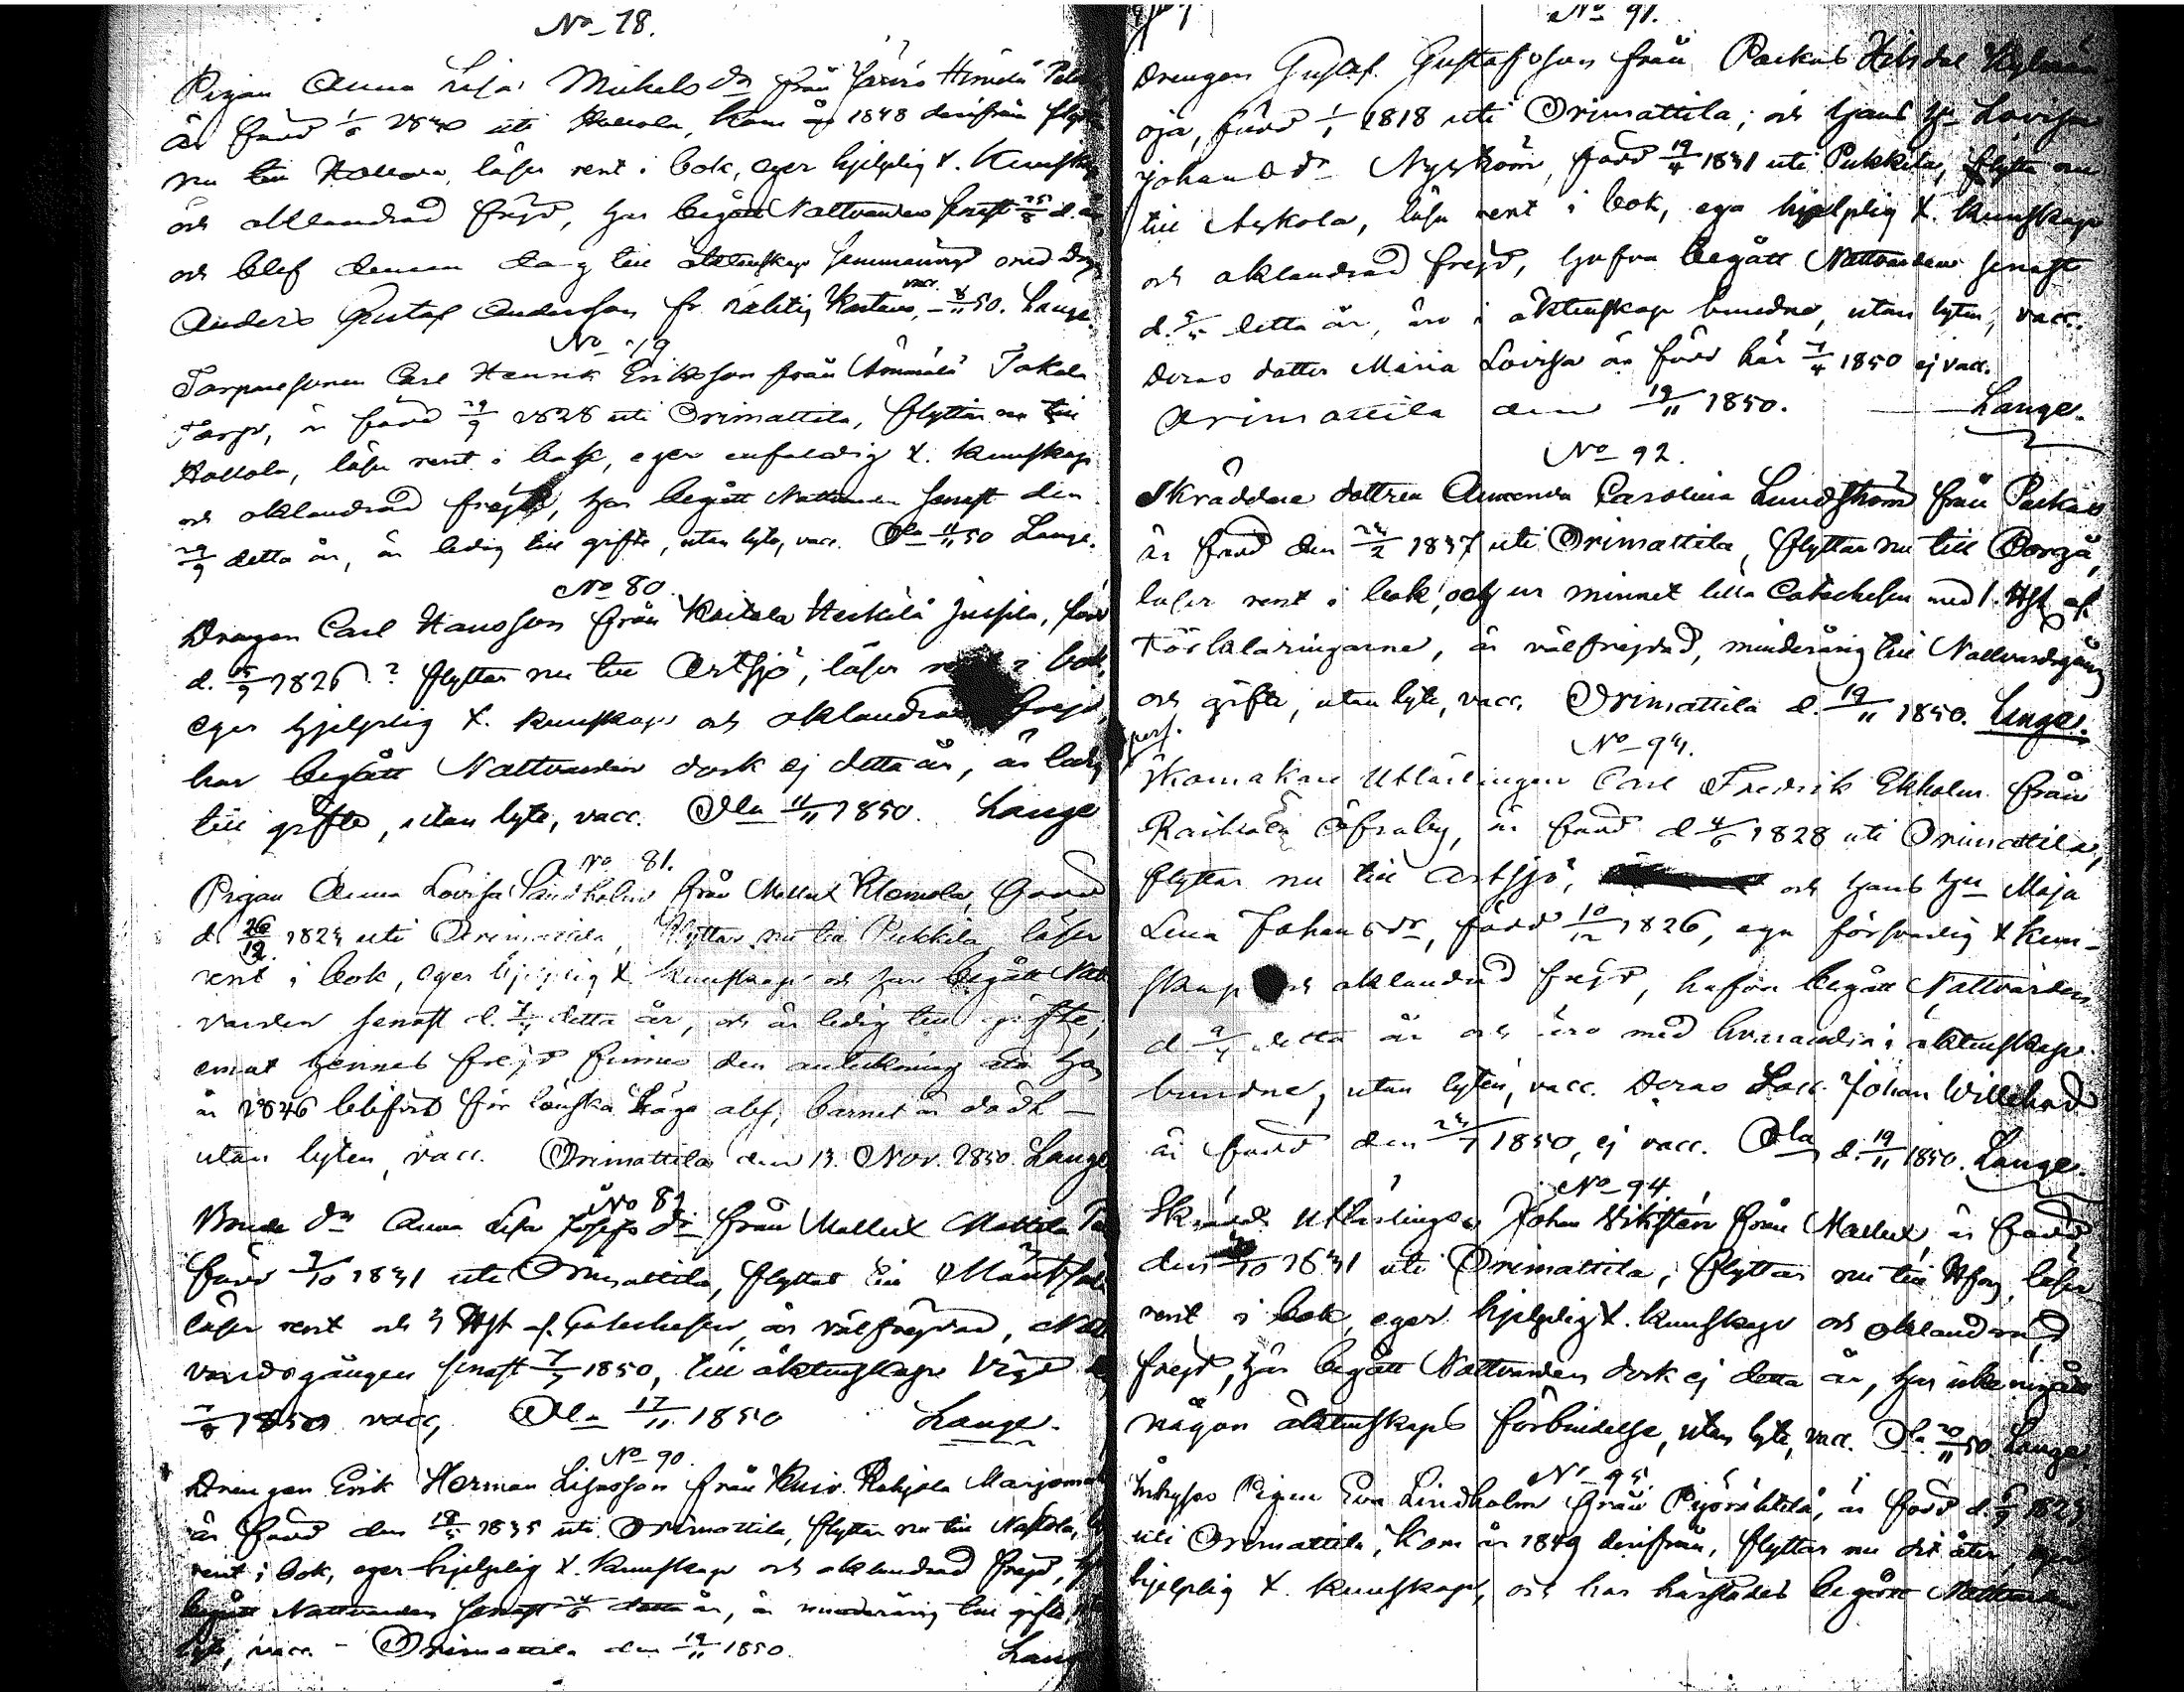 No 78.
Pigan Anna Lisa Michels dr från Järvis Himilä
är född 1/6 1840 uti Hollola, kom år 1848 derifrån
nu till Hollola, läser rent i bok, eger hjelplig X. Kunskap
och oklandrad frejd, har begått Nattvarden senast 25/8 d. år
och blef denna dag till äktenskap sammanvigd med Dräng
Anders Gustaf Andersson fr. vacc. 4/11 50. Lange.
No 79
Torparesonen Carl Henrik Eriksson från Ämmälä Jokela
Torp, är född 29/9 1828 uti Orimattila, flyttar nu till
Hollola, läser rent i bok, eger enfaldig X. kunskap
och oklandrad frejd, har begått Nattvarden senast den
29/9 detta år, är ledig till gifte, utan lyte, vacc. Ola 11/11 50 Lange.
No 80
Drengen Carl Hansson från Koitola Heikilä Jussila, född
d. 15/9 1826? flyttar nu till Artsjö, läser rent i bok
eger hjelplig X. kunskap och oklandrad frejd
har begått Nattvarden dock ej detta år, är ledig
till gifte, utan lyte, vacc. Ola 11/11 1850. Lange
No 81.
Pigan Anna Lovisa Sandholm från Mallux Klemola, född
d. 26/12 1824 uti Orimattila, flyttar nu till Pukkila, läser
rent i bok, eger hjelplig X kunskap och har begått Natt
varden senast d. 7/4 detta år, och är ledig till gifte,
emot hennes frejd finnes den anteckning att hon
år 1846 blifvit för lönska läge abs; barnet är dödt –
utan lyten, vacc. Orimattila den 13. Nov. 1850. Lange
No 82
Bonde dr Anna Lisa Josefs dr från Mallux Mattila
född 3/10 1831 uti Orimattila, flyttat till Mäntsälä
läser rent och 3 Hst af Catechesen, är välfrejdad, Natt
vardsgången senast 7/4 1850, till äktenskap vigd
1850 vacc, Ola 17/11 1850 Lange.
No 90.
Drengen Erik Herman Lisasson från Kuiv. Rahjola Marjomä
är född den 18/5 1835 uti Orimattila, flyttar nu till Nastola,
rent i bok, eger hjelplig X. kunskap och oklandrad frejd,
begått Nattvarden senast detta år, är minderårig till gifte,
lyte, vacc. – Orimattila den 19/11 1850. Lange
No 91.
Drengen Gustaf Gustafsson från Parkas
oja, född 1/1 1818 uti Orimattila; och hans hu Lovisa
Johans dr Nyström, född 19/4 1831 uti Pukkila, flytta nu
till Askola, läsa rent i bok, ega hjelplig X. kunskap
och oklandrad frejd, hafva begått Nattvarden senast
d. 5/5 detta år, äro i äktenskap bundne, utan lyten, vacc.
Deras dotter Maria Lovisa är född här 7/4 1850 ej vacc.
Orimattila den 19/11 1850. Lange.
No 92.
Skräddare dottren Amanda Carolina Lundström från Parkas
är född den 24/2 1837 uti Orimattila, flyttar nu till Borgå,
läser rent i bok, och ur minnet lilla Catechesen med 1. Hst af
Förklaringarne, är välfrejdad, minderårig till Nattvardsgång
och gifte, utan lyte, vacc. Orimattila d. 19/11 1850. Lange.
No 93.
Skomakare Utlärlingen Carl Fredrik Ekholm från
Raikala Öfraby, är född d. 4/6 1828 uti Orimattila,
flyttar nu till Artsjö, och hans hu Maja
Lena Johans dr, född 10/12 1826, ega försvarlig X kun-
skap och oklandrad frejd, hafva begått Nattvarden
d. 9/4 detta år och äro med hvarandra i äktenskap
bundne, utan lyten, vacc. Deras Son Johan Willehad
är född den 24/7 1850, ej vacc. Ola d. 19/11 1850. Lange.
No 94
Skrädd. Utlärlingen Johan Vikstén från Mallux, är född
den /10 1831 uti Orimattila, flyttar nu till Hfors, läser
rent i bok, eger hjelplig X. kunskap och oklandrad
frejd, har begått Nattvarden dock ej detta år, har icke ingått
någon äktenskaps förbindelse, utan lyte, vacc. Ola 20/11 50 Lange.
No 95.
Inhyses Pigan Eva Lindholm från Pyörähtälä, är född d.
uti Orimattila, kom år 1849 derifrån, flyttar nu dit åter, eger
hjelplig X. kunskap, och har härstädes begått Nattvarden